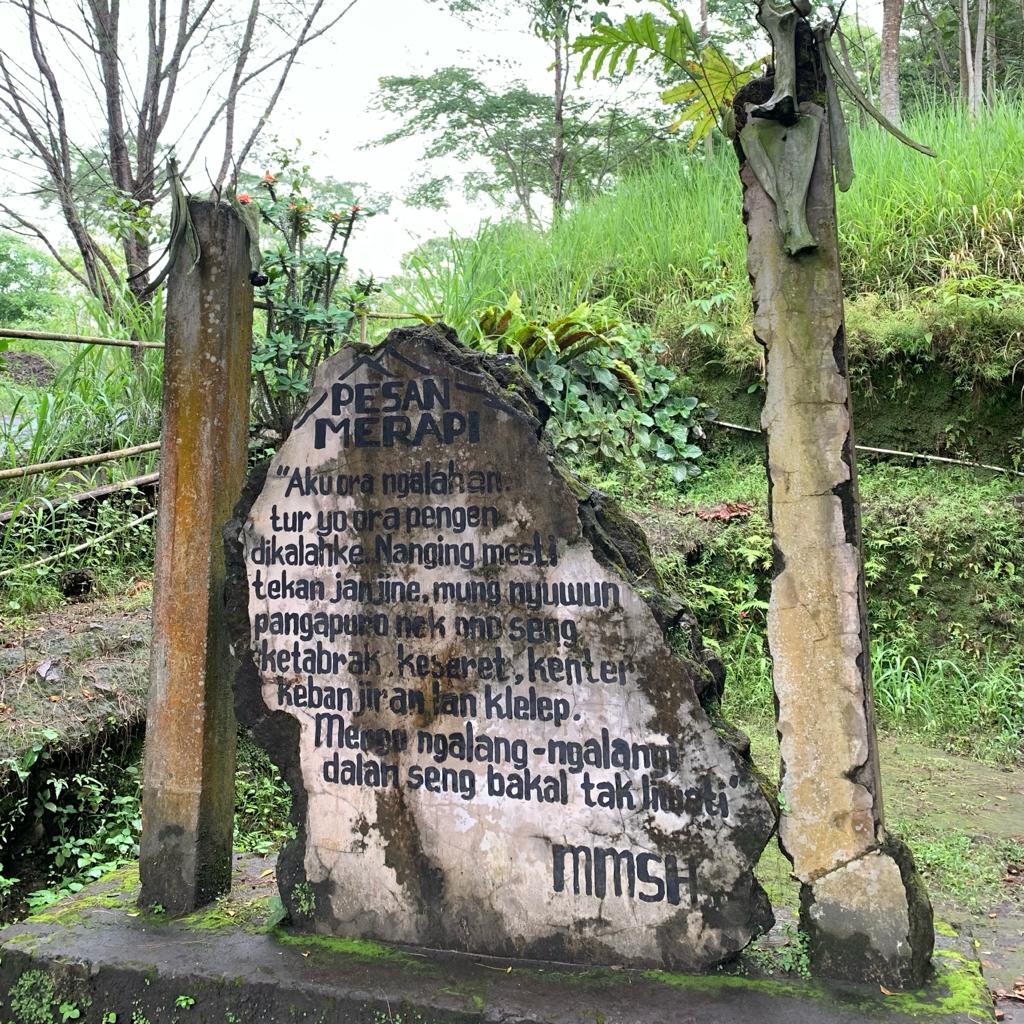 PESAN
MERAPI
"Aku ora ngalahan.
tur yo ora pengen
dikalahke. Nanging mesti
tekan janjine, mung nyuwun
pangapuro nek ono seng
ketabrak, keseret, kenter
kebanjiran lan klelep.
Mergo ngalang-ngalangi
dalan seng bakal tak liwati"
MMSH